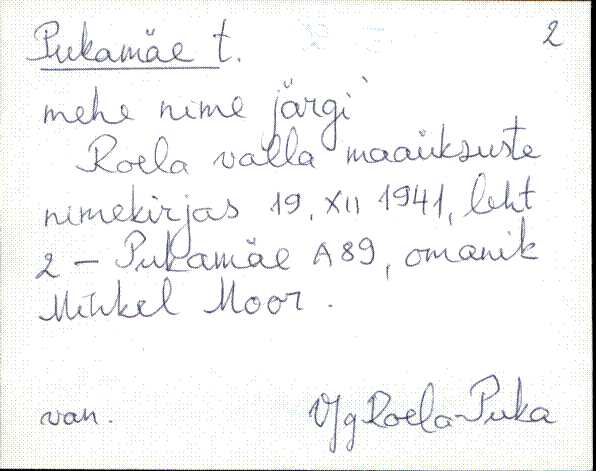 2
Pukamäe t.
mehe nime järgi
Roela valla maaüksuste
nimekirjas 19. XII 1941, leht
2 – Pukamäe A89, omanik
Mihkel Moor.
van. VJg Roela-Puka